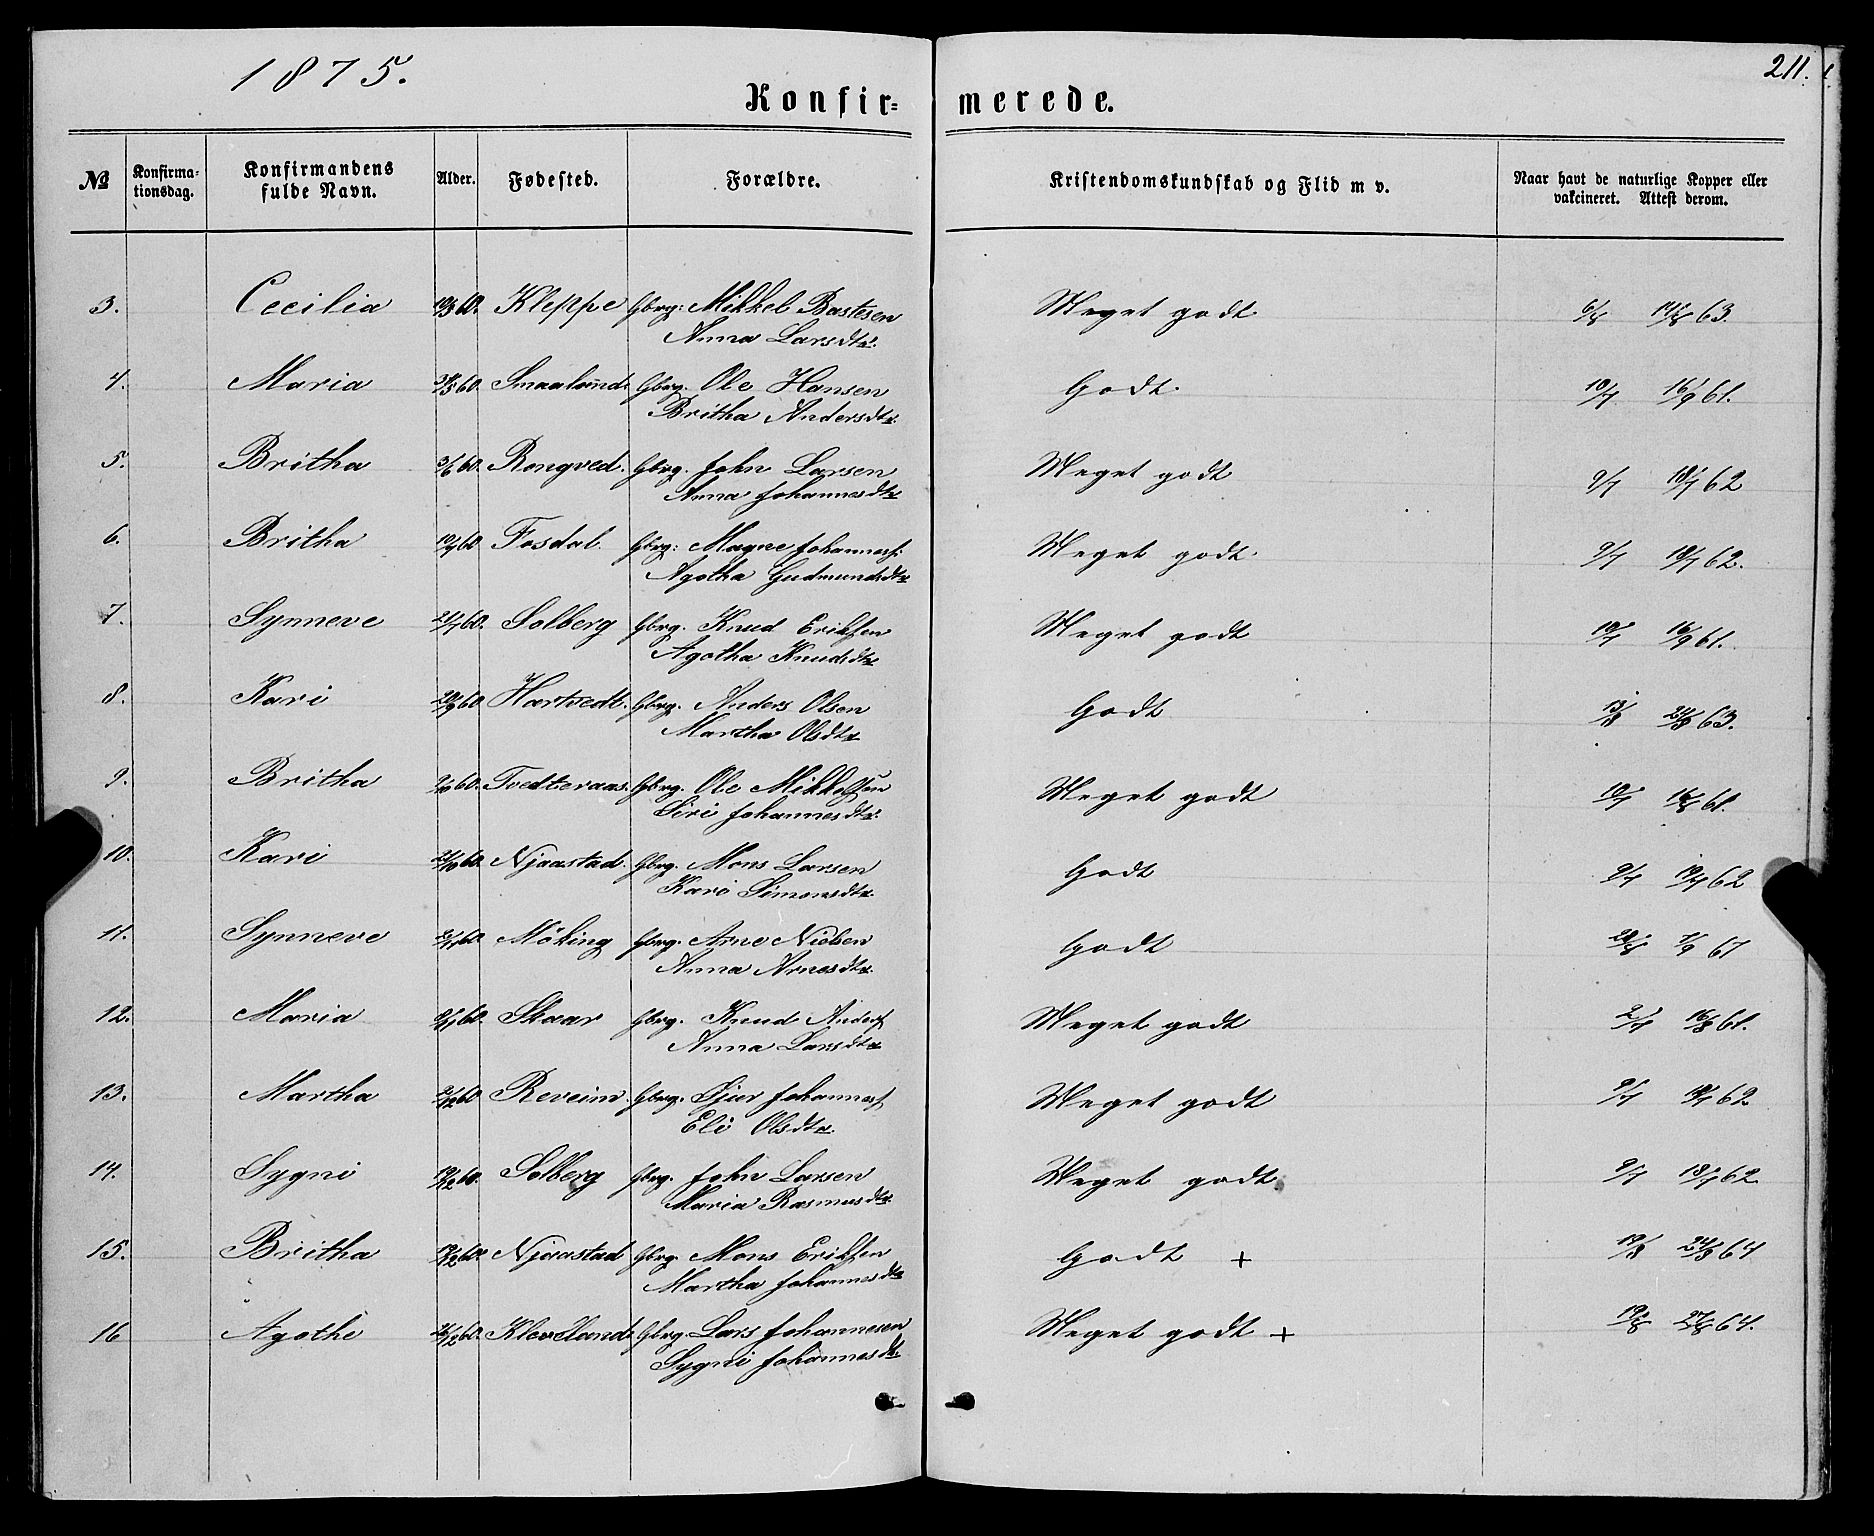 1875.
211.
Konfir= merede.
No Konfirma-tionsdag. Konfirmandens fulde Navn. Alder. Fødested. Forældre. Kristendomskundskab og Flid m v. Naar havt de naturlige Kopper eller vakcineret. Attest derom.
3. Cecilia 19/3 60. Kleppe Gbrg: Mikkel Bastesen Meget godt 6/8 14/8 63.
Anna Larsdtr.
4. Maria 31/5 60. Smaaland. Gbrg. Ole Hansen Godt. 10/7 16/9 61.
Britha Andersdtr.
5. Britha 3/6 60. Rongved. Gbrg. John Larsen Meget godt 9/7 18/7 62
Anna Johannesdtr
6. Britha 10/7 60 Fosdal. Gbrg: Magne Johannesf: Meget godt 9/7 18/7 62.
Agotha Gudmundsdtr
7. Synneve 21/7 60. Solberg Gbrg. Knud Eriksen Meget godt 10/7 16/9 61.
Agotha Knudsdtr
8. Kari 20/9 60 Hartvedt. Gbrg. Anders Olsen Godt 13/8 24/8 63.
Martha Olsdtr
9. Britha 9/10 60. Tvedteraas. Gbrg. Ole Mikkelsen Meget godt 10/7 16/8 61.
Siri Johannesdtr.
10. Kari 21/10 60. Njaastad. Gbrg. Mons Larsen Godt 9/7 19/7 62
Kari Simonsdtr.
11. Synneve 2/11 60. Möking Gbrg. Arne Nielsen Godt 28/8 7/9 67
Anna Arnesdtr.
12. Maria 9/11 60. Skaar Gbrg. Knud Andersf Meget godt 2/7 16/8 61.
Anna Larsdtr
13. Martha 2/12 60 Reveim. Gbrg. Sjur Johannesf Meget godt 9/7 18/7 62.
Eli Olsdtr.
14. Sygni 12/12 60. Solberg Gbrg. John Larsen Meget godt 9/7 18/7 62.
Maria Rasmusdtr.
15. Britha 19/12 60. Njaastad Gbrg. Mons Eriksen Godt + 19/8 24/8 64
Martha Johannesdtr
16 Agothe 26/12 60. Kleveland. Gbrg. Lars Johannesen Meget godt + 19/8 27/8 64.
Sygni Johannesdtr